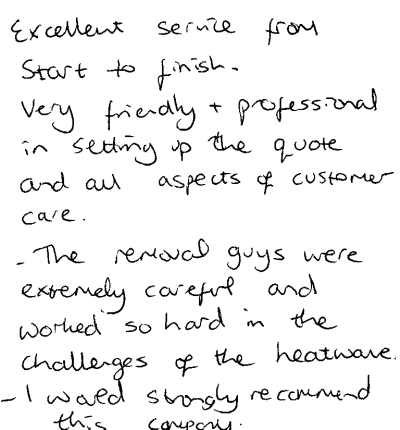 Excellent service from
Start to finish.
Very friendly + professional
in setting up the quote
and all aspects of customer
care.
- The removal guys were
extremely careful and
worked so hard in the
challenges of the heatwave.
- I would strongly recommend
this company.